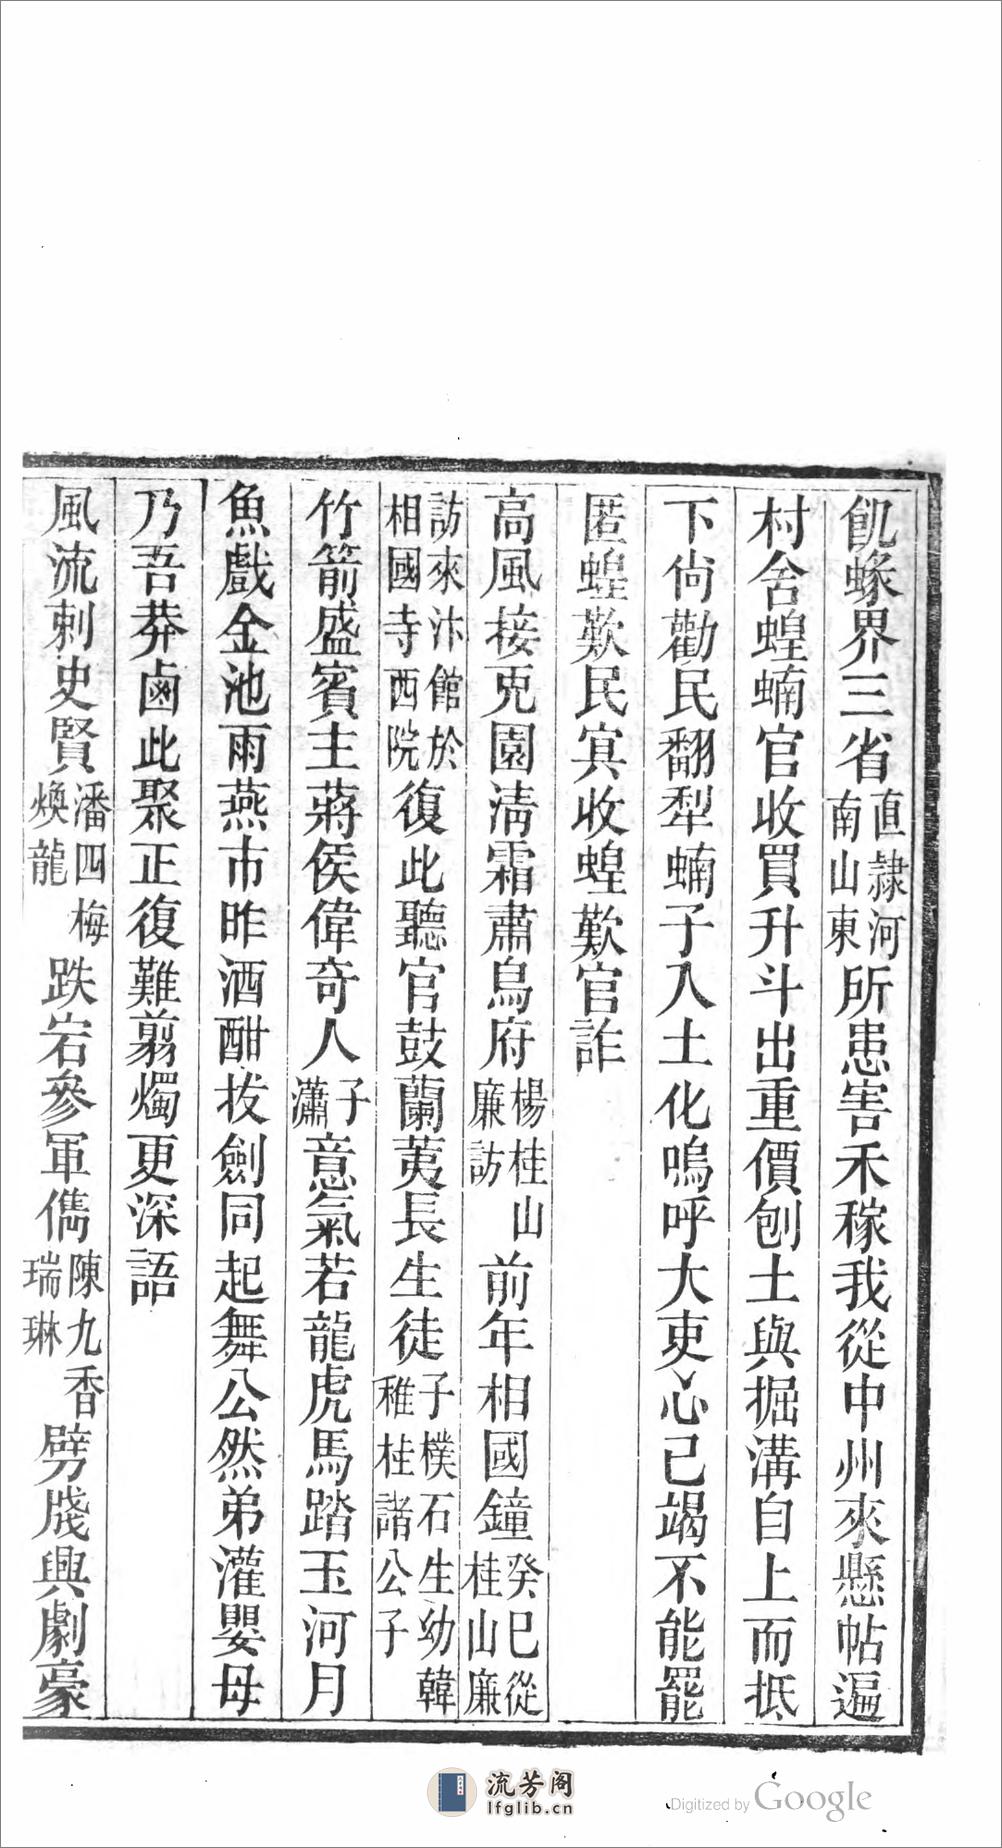 飢蝝界三省直隸河南山東所患害禾稼我從中州來懸帖遍
村舍蝗蝻官收買升斗出重價刨土與掘溝自上而抵
下尙勸民翻犁蝻子入土化嗚呼大吏心已竭不能罷
匿蝗歎民寘收蝗歎官詐
高風接兎園淸霜肅烏府楊桂山廉訪前年相國鐘癸巳從桂山廉
訪來汴館於相國寺西院復此聽官鼓蘭荑長生徒子樸石生幼韓稚桂諸公子
竹箭盛賓主蔣侯偉奇人子瀟意氣若龍虎馬踏玉河月
魚戲金池雨燕市昨酒酣拔劍同起舞公然弟灌嬰毋
乃吾莽鹵此聚正復難翦燭更深語
風流刺史賢潘四梅煥龍跌宕參軍儁陳九香瑞琳劈牋興劇豪
流芳阁
lfglib.cn
Digitized by Google